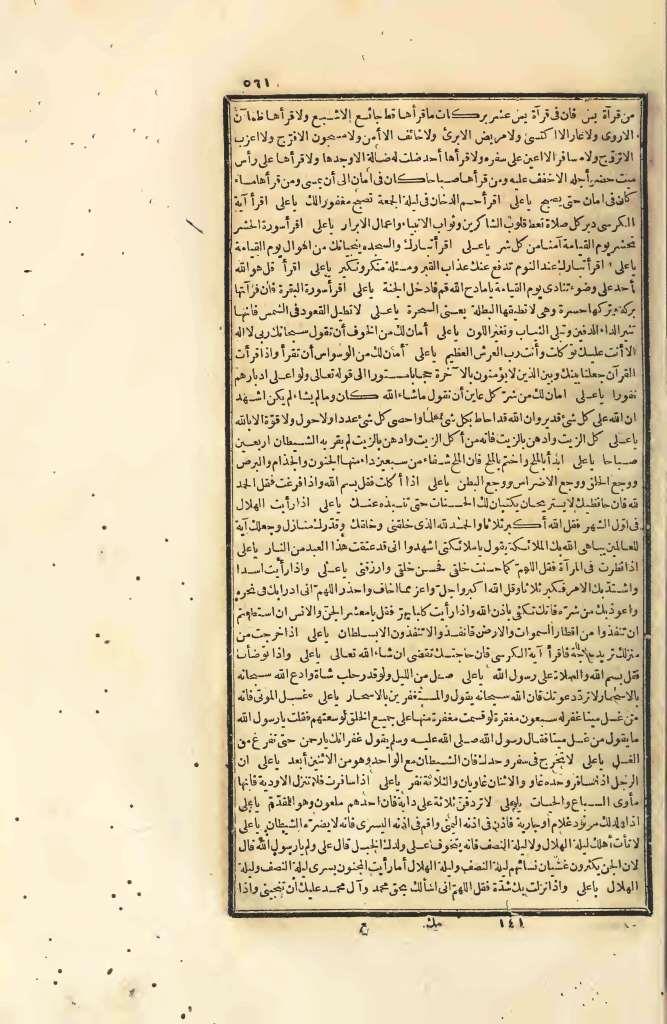 ٥٦١
من قرآة يس فان فى قرآة يس عشر بركات ما قرأها قط جائع الا شبع ولا قرأها ظمآن
الا روى ولا عار الا اكتسى ولا مريض الا برئ ولا خائف الا أمن ولا مسجون الا فرج ولا اعزب
الا تزوج ولا مسافر الا اعين على سفره ولا قرأها أحد ضلت له ضالة الا وجدها ولا قرأها على رأس
ميت حضر أجله الا خفف عليه ومن قرأها صباحا كان فى امان الى أن يمسى ومن قرأها مساء
كان فى امان حتى يصبح ياعلى اقرأ حم الدخان فى ليلة الجمعة تصبح مغفورا لك ياعلى اقرأ آية
الكرسى دبر كل صلاة تعط قلوب الشاكرين وثواب الانبياء واعمال الابرار ياعلى اقرأ سورة الحشر
تحشر يوم القيامة آمنا من كل شر ياعلى اقرأ تبارك والسجدة ينجيانك من اهوال يوم القيامة
ياعلى اقرأ تبارك عند النوم تدفع عنك عذاب القبر ومسئلة منكر ونكير ياعلى اقرأ قل هو الله
أحد على وضوء تنادى يوم القيامة يامادح الله قم فادخل الجنة ياعلى اقرأ سورة البقرة فان قرآتها
بركة وتركها حسرة وهى لا تطيقها البطلة يعنى السحرة ياعلى لا تطيل القعود فى الشمس فانها
تثير الداء الدفين وتبلى الثياب وتغير اللون ياعلى أمان لك من الخوف أن تقول سبحانك ربى لا اله
الا أنت عليك توكلت وأنت رب العرش العظيم ياعلى أمان لك من الوسواس أن تقرأ واذا قرأت
القرآن جعلنا بينك وبين الذين لا يؤمنون بالآخرة حجابا مستورا الى قوله تعالى ولوا على ادبارهم
نفورا ياعلى امان لك من شر كل عاين أن تقول ماشاء الله كان ومالم يشاء لم يكن اشهد
ان الله على كل شئ قدير وان الله قد احاط بكل شئ علما واحصى كل شئ عددا ولا حول ولا قوة الا بالله
ياعلى كل الزيت وادهن بالزيت فانه من أكل الزيت وادهن بالزيت لم يقربه الشيطان اربعين
صباحا ياعلى ابدأ بالملح واختم بالملح فان الملح شفاء من سبعين داء منها الجنون والجذام والبرص
ووجع الحلق ووجع الاضراس ووجع البطن ياعلى اذا أكلت فقل بسم الله واذا فرغت فقل الحمد
لله فان حافظيك لا يستريحان يكتبان لك الحسنات حتى تنبذه عنك ياعلى اذا رأيت الهلال
فى اول الشهر فقل الله أكبر ثلاثا والحمد لله الذى خلقنى وخلقك وقدرك منازل وجعلك آية
للعالمين يباهى الله بك الملائكة يقول ياملائكتى اشهدوا انى قد عتقت هذا العبد من النار ياعلى
اذا نظرت فى المرآة فقل اللهم كما حسنت خلقى فحسن خلقى وارزقنى ياعلى واذا رأيت اسدا
واشتد بك الامر فكبر ثلاثا وقل الله اكبر واجل واعز مما اخاف واحذر اللهم انى ادرأ بك فى نحره
واعوذ بك من شره فانك تكفى باذن الله واذا رأيت كلبا يهر فقل يامعشر الجن والانس ان استطعتم
ان تنفذوا من اقطار السموات والارض فانفذوا لا تنفذون الا بسلطان ياعلى اذا خرجت من
منزلك تريد حاجة فاقرأ آية الكرسى فان حاجتك تقضى ان شاء الله تعالى ياعلى واذا توضأت
فقل بسم الله والصلاة على رسول الله ياعلى صل من الليل ولو قدر حلب شاة وادع الله سبحانه
بالاسحار لا ترد دعوتك فان الله سبحانه يقول والمستغفرين بالاسحار ياعلى غسل الموتى فانه
من غسل ميتا غفر له سبعون مغفرة لو قسمت مغفرة منها على جميع الخلق لوسعتهم فقلت يارسول الله
مايقول من غسل ميتا فقال رسول الله صلى الله عليه وسلم يقول غفرانك يارحمن حتى تفرغ من
الغسل ياعلى لا تخرج فى سفر وحدك فان الشيطان مع الواحد وهو من الاثنين أبعد ياعلى ان
الرجل اذا سافر وحده غاو والاثنان غاويان والثلاثة نفر ياعلى اذا سافرت فلا تنزل الاودية فانها
مأوى السباع والحيات ياعلى لا تردفن ثلاثة على دابة فان احدهم ملعون وهو المقدم ياعلى
اذا ولد لك مولود غلام أو جارية فاذن فى اذنه اليمنى واقم فى اذنه اليسرى فانه لا يضره الشيطان ياعلى
لا تأت أهلك ليلة الهلال ولا ليلة النصف فانه يتخوف على ولدك الخبل قال على ولم يارسول الله قال
لان الجن يكثرون غشيان نسائهم ليلة النصف وليلة الهلال أما رأيت المجنون يسرى ليلة النصف وليلة
الهلال ياعلى واذا نزلت بك شدة فقل اللهم انى اسألك بحق محمد وآل محمد عليك أن تنجينى واذا
١٤١